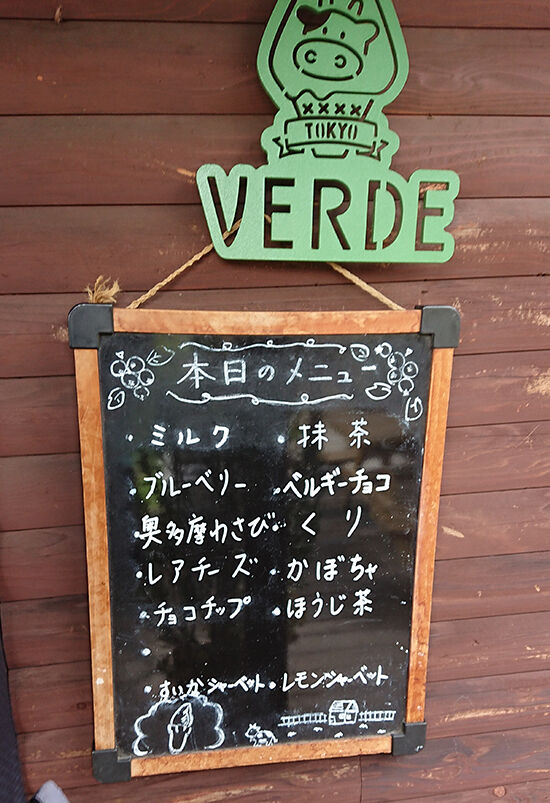 TOKYO
VERDE
本日のメニュー
・ミルク ・抹茶
・ブルーベリー ・ベルギーチョコ
・奥多摩わさび ・くり
・レアチーズ ・かぼちゃ
・チョコチップ ・ほうじ茶
・
・すいかシャーベット ・レモンシャーベット